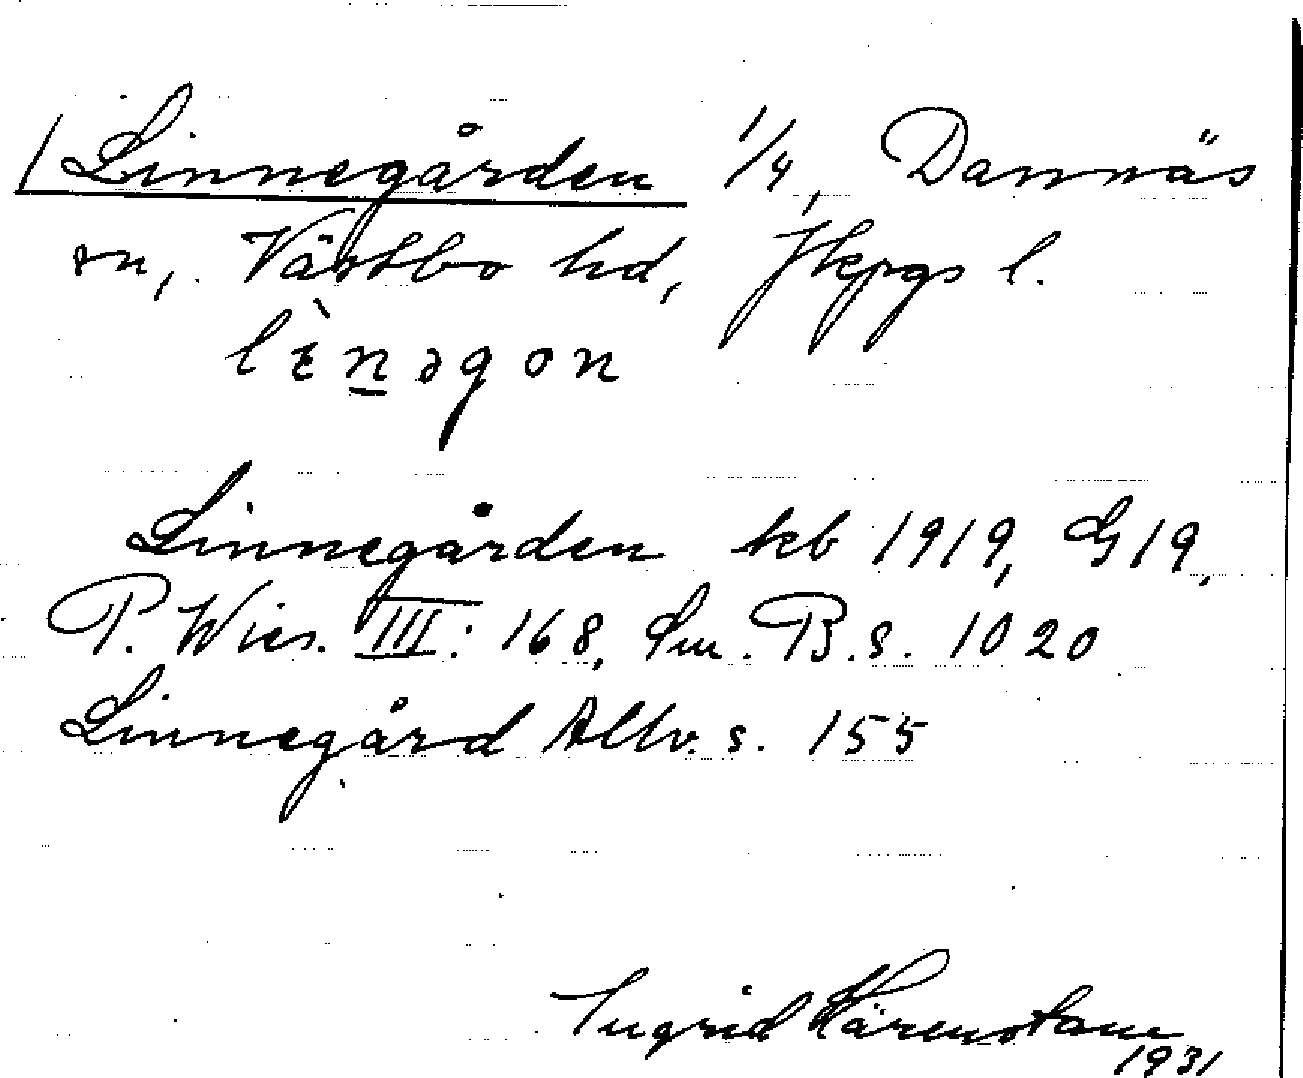 /Linnegården 1/4, Dannäs
sn, Västbo hd, Jkpgs l.
lìnəgon
Linnegården kb 1919, G19,
P. Wies. III: 168, Sm. B. s. 1020
Linnegård Allv. s. 155
Ingrid Härenstam
1931